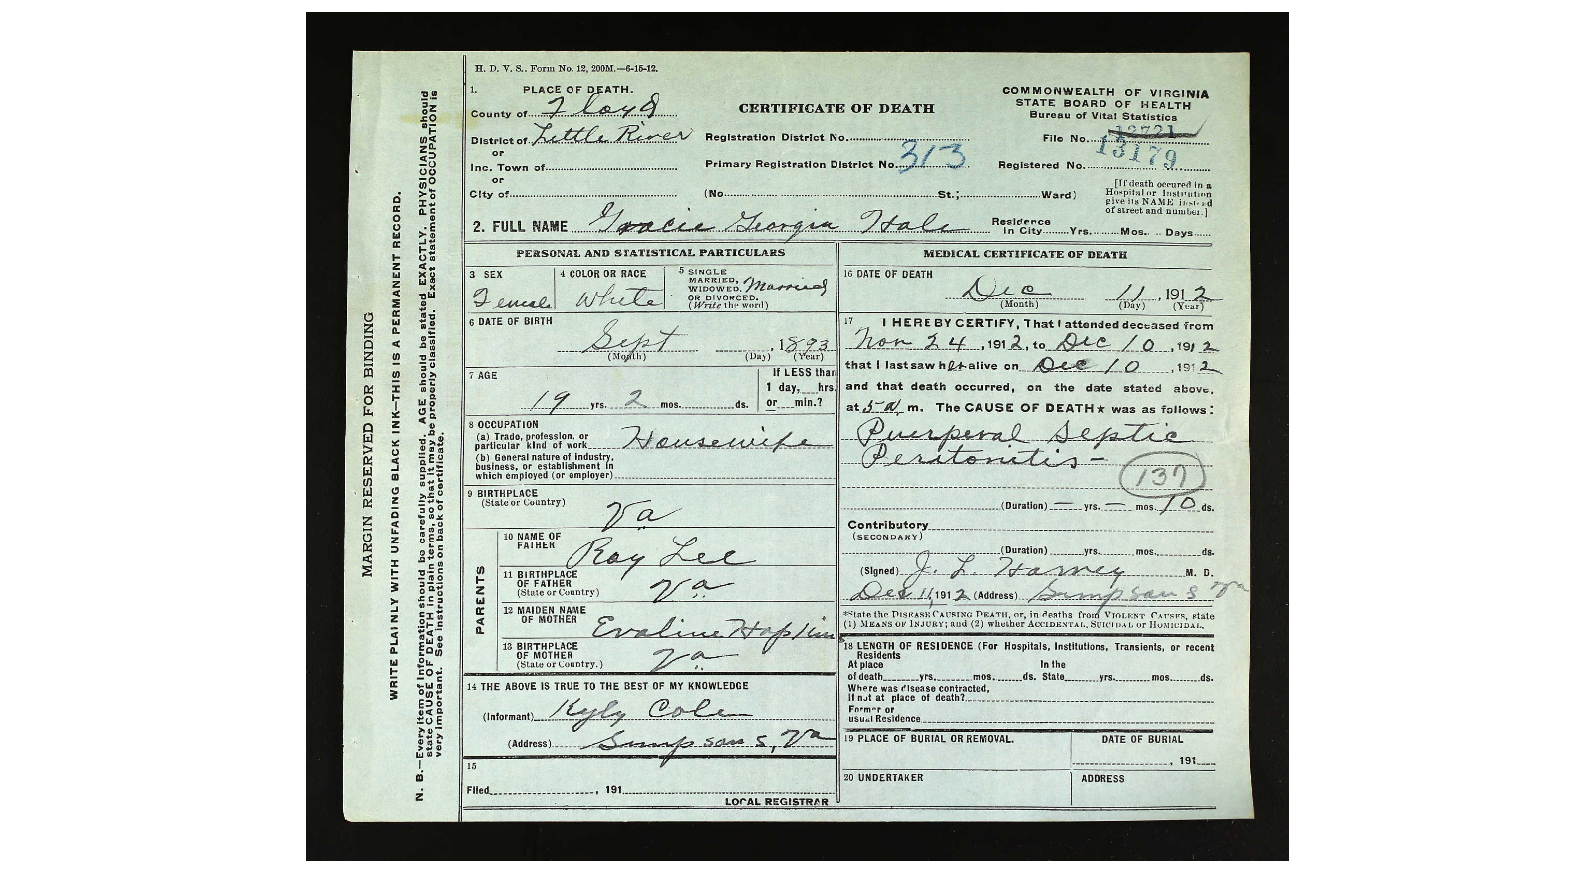 H. D. V. S.. Form No. 12, 200M.—6-15-12.
1. PLACE OF DEATH.
County of Floyd
District of Little River
or
Inc. Town of
or
City of
CERTIFICATE OF DEATH
Registration District No.
Primary Registration District No. 313
(No. St.; Ward)
COMMONWEALTH OF VIRGINIA
STATE BOARD OF HEALTH
Bureau of Vital Statistics
File No. 12721
13179
Registered No.
[If death occured in a
Hospital or Institution
give its NAME instead
of street and number.]
2. FULL NAME Gracie Georgia Hale
Residence
In City Yrs. Mos. Days
PERSONAL AND STATISTICAL PARTICULARS
3 SEX
Female
4 COLOR OR RACE
White
5 SINGLE
MARRIED,
WIDOWED,
OR DIVORCED.
(Write the word)
Married
6 DATE OF BIRTH
Sept , 1893
(Month) (Day) (Year)
7 AGE
19 yrs. 2 mos. ds.
If LESS than
1 day, hrs.
or min.?
8 OCCUPATION
(a) Trade, profession, or
particular kind of work Housewife
(b) General nature of industry,
business, or establishment in
which employed (or employer)
9 BIRTHPLACE
(State or Country)
Va
PARENTS
10 NAME OF
FATHER
Roy Lee
11 BIRTHPLACE
OF FATHER
(State or Country)
Va
12 MAIDEN NAME
OF MOTHER
Evaline Hopkins
13 BIRTHPLACE
OF MOTHER
(State or Country.)
Va
14 THE ABOVE IS TRUE TO THE BEST OF MY KNOWLEDGE
(Informant) Kyly Cole
(Address) Simpsons, Va
15
Filed , 191
LOCAL REGISTRAR
MEDICAL CERTIFICATE OF DEATH
16 DATE OF DEATH
Dec 11 , 1912
(Month) (Day) (Year)
17 I HEREBY CERTIFY, That I attended deceased from
Nov 24 , 1912, to Dec 10 , 1912
that I last saw her alive on Dec 10 , 1912
and that death occurred, on the date stated above,
at 5 a m. The CAUSE OF DEATH★ was as follows:
Puerperal Septic
Peritonitis —
137
(Duration) — yrs. — mos. 10 ds.
Contributory
(SECONDARY)
(Duration) yrs. mos. ds.
(Signed) J. L. Harney M. D.
Dec 11, 1912 (Address) Simpsons Va
*State the DISEASE CAUSING DEATH, or, in deaths from VIOLENT CAUSES, state
(1) MEANS OF INJURY; and (2) whether ACCIDENTAL, SUICIDAL or HOMICIDAL.
18 LENGTH OF RESIDENCE (For Hospitals, Institutions, Transients, or recent
Residents
At place In the
of death yrs. mos. ds. State yrs. mos. ds.
Where was disease contracted,
If not at place of death?
Former or
usual Residence
19 PLACE OF BURIAL OR REMOVAL.
DATE OF BURIAL
, 191
20 UNDERTAKER
ADDRESS
MARGIN RESERVED FOR BINDING
WRITE PLAINLY WITH UNFADING BLACK INK—THIS IS A PERMANENT RECORD.
N. B.—Every item of information should be carefully supplied. AGE should be stated EXACTLY. PHYSICIANS should
state CAUSE OF DEATH in plain terms, so that it may be properly classified. Exact statement of OCCUPATION is
very important. See instructions on back of certificate.